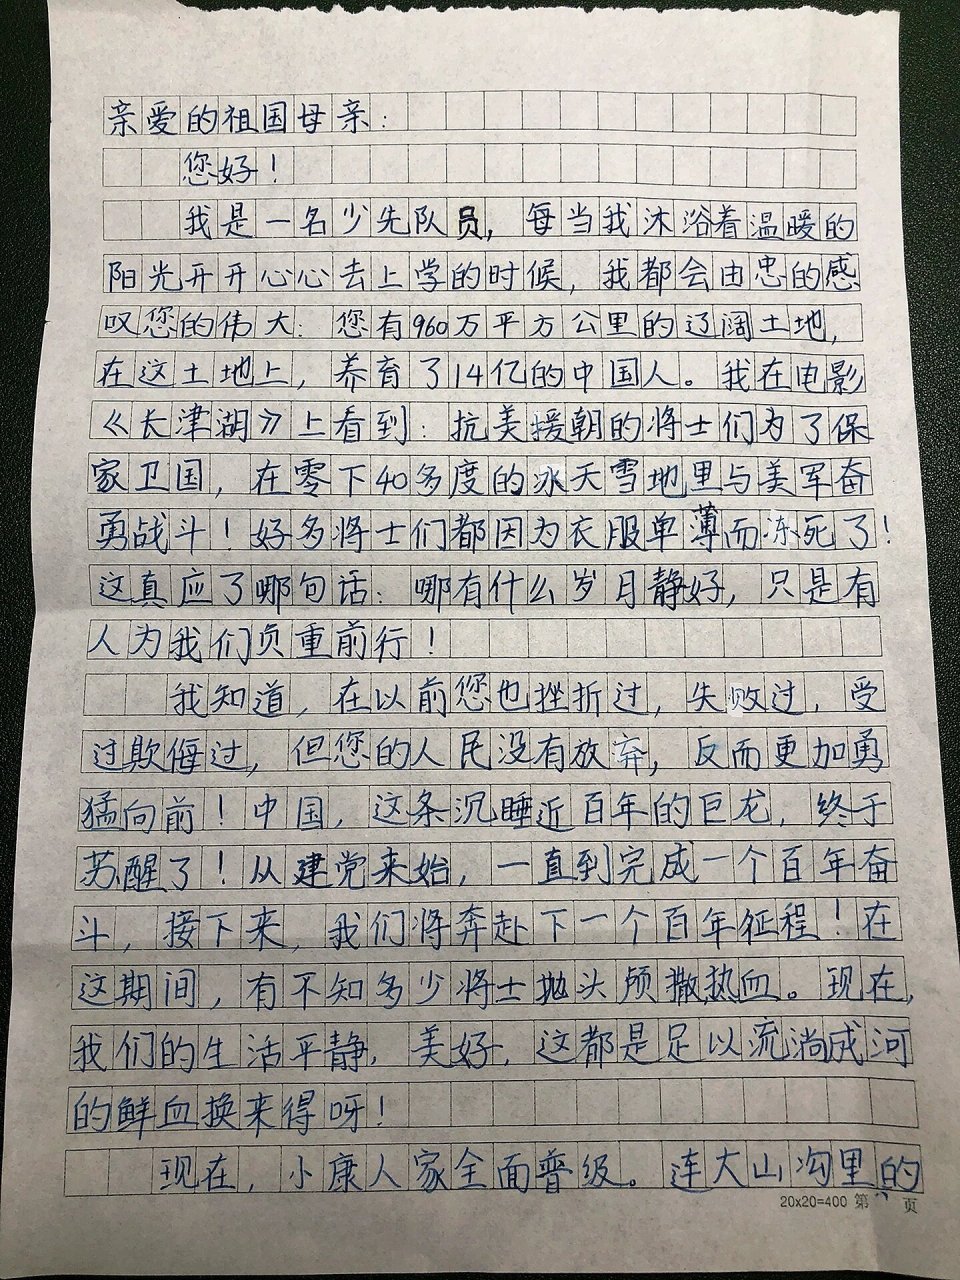 亲爱的祖国母亲:
您好!
我是一名少先队员,每当我沐浴着温暖的
阳光开开心心去上学的时候,我都会由忠的感
叹您的伟大:您有960万平方公里的辽阔土地,
在这土地上,养育了14亿的中国人。我在电影
《长津湖》上看到:抗美援朝的将士们为了保
家卫国,在零下40多度的冰天雪地里与美军奋
勇战斗!好多将士们都因为衣服单薄而冻死了!
这真应了哪句话:哪有什么岁月静好,只是有
人为我们负重前行!
我知道,在以前您也挫折过,失败过,受
过欺侮过,但您的人民没有放弃,反而更加勇
猛向前!中国,这条沉睡近百年的巨龙,终于
苏醒了!从建党来始,一直到完成一个百年奋
斗,接下来,我们将奔赴下一个百年征程!在
这期间,有不知多少将士抛头颅撒热血。现在,
我们的生活平静,美好,这都是足以流淌成河
的鲜血换来得呀!
现在,小康人家全面普级。连大山沟里的
20x20=400 第 页